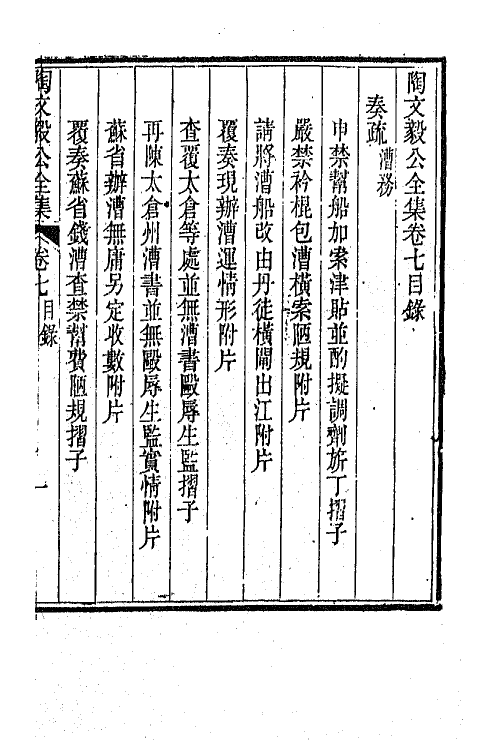 陶文毅公全集卷七目錄
奏疏 漕務
申禁幫船加索津貼並酌擬調劑旂丁摺子
嚴禁衿棍包漕橫索陋規附片
請將漕船改由丹徒橫閘出江附片
覆奏現辦漕運情形附片
查覆太倉等處並無漕書毆辱生監摺子
再陳太倉州漕書並無毆辱生監實情附片
蘇省辦漕無庸另定收數附片
覆奏蘇省錢漕查禁幫費陋規摺子
陶文毅公全集 卷七 目錄 一